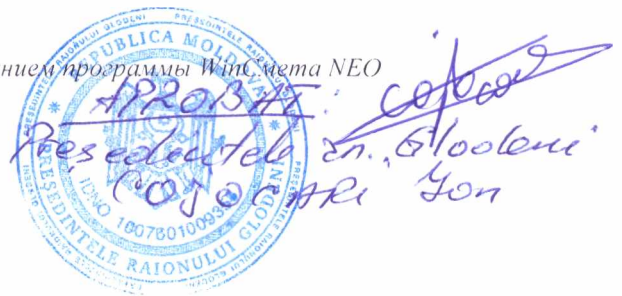 нием программы WinСмета NEO
APROBAT:
Președintele rn. Glodeni
COJOCARI Ion
REPUBLICA MOLDOVA
PREȘEDINTELE RAIONULUI GLODENI
IDNO